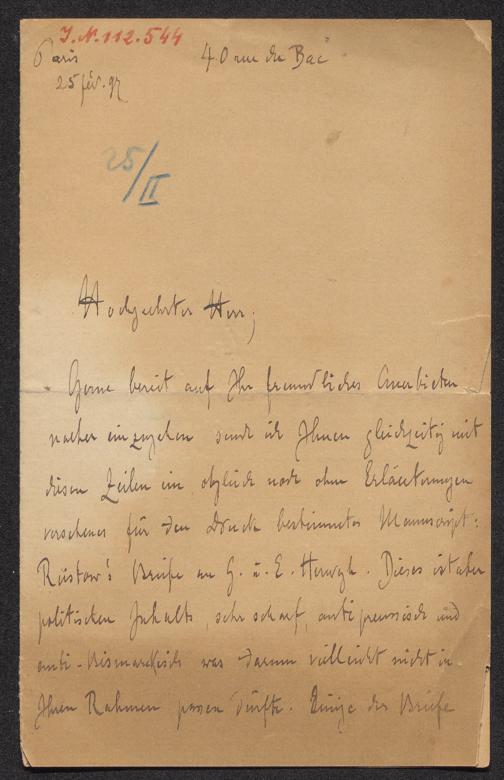 I.N.112.544
Paris 40 rue du Bac
25 fév. 97
25/II
Hochgeehrter Herr;
Gerne bereit auf Ihr freundliches Anerbieten
naeher einzugehen sende ich Ihnen gleichzeitig mit
diesen Zeilen ein obgleich noch ohne Erläuterungen
versehenes für den Druck bestimmtes Manuscript:
Rüstow's Briefe an G. u. E. Herwegh. Dieses ist aber
politischen Inhalts, sehr scharf, antipreussisch und
anti-bismarckisch was darum vielleicht nicht in
Ihren Rahmen passen dürfte. Einige der Briefe